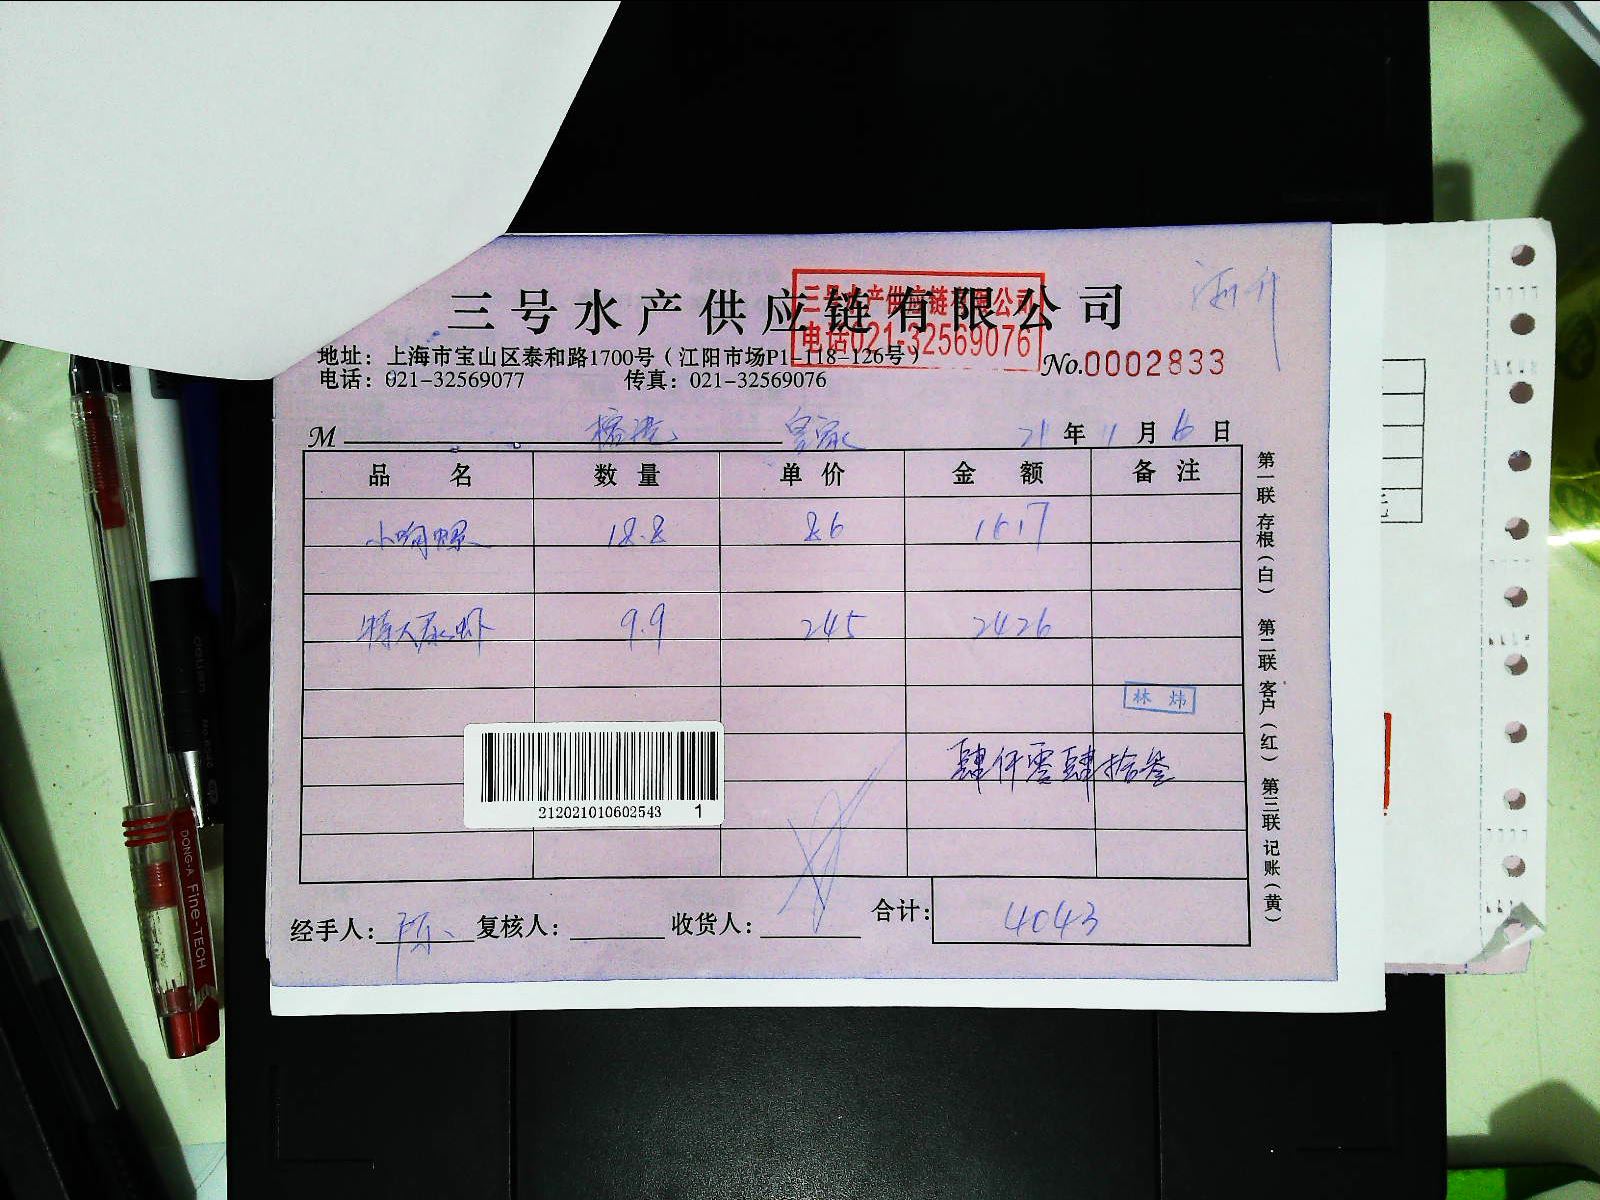 三号水产供应链有限公司
三号水产供应链有限公司
电话021-32569076
地址：上海市宝山区泰和路1700号（江阳市场P1-118-126号）
电话：021-32569077 传真：021-32569076
No.0002833
M 榕港 皇家 21年11月6日
品名 数量 单价 金额 备注
小响螺 18.8 86 1617
特大尿虾 9.9 245 2426
林炜
肆仟零肆拾叁
212021010602543 1
经手人：陈 复核人： 收货人： 合计：4043
第一联 存根（白） 第二联 客户（红） 第三联 记账（黄）
DONG-A Fine-TECH